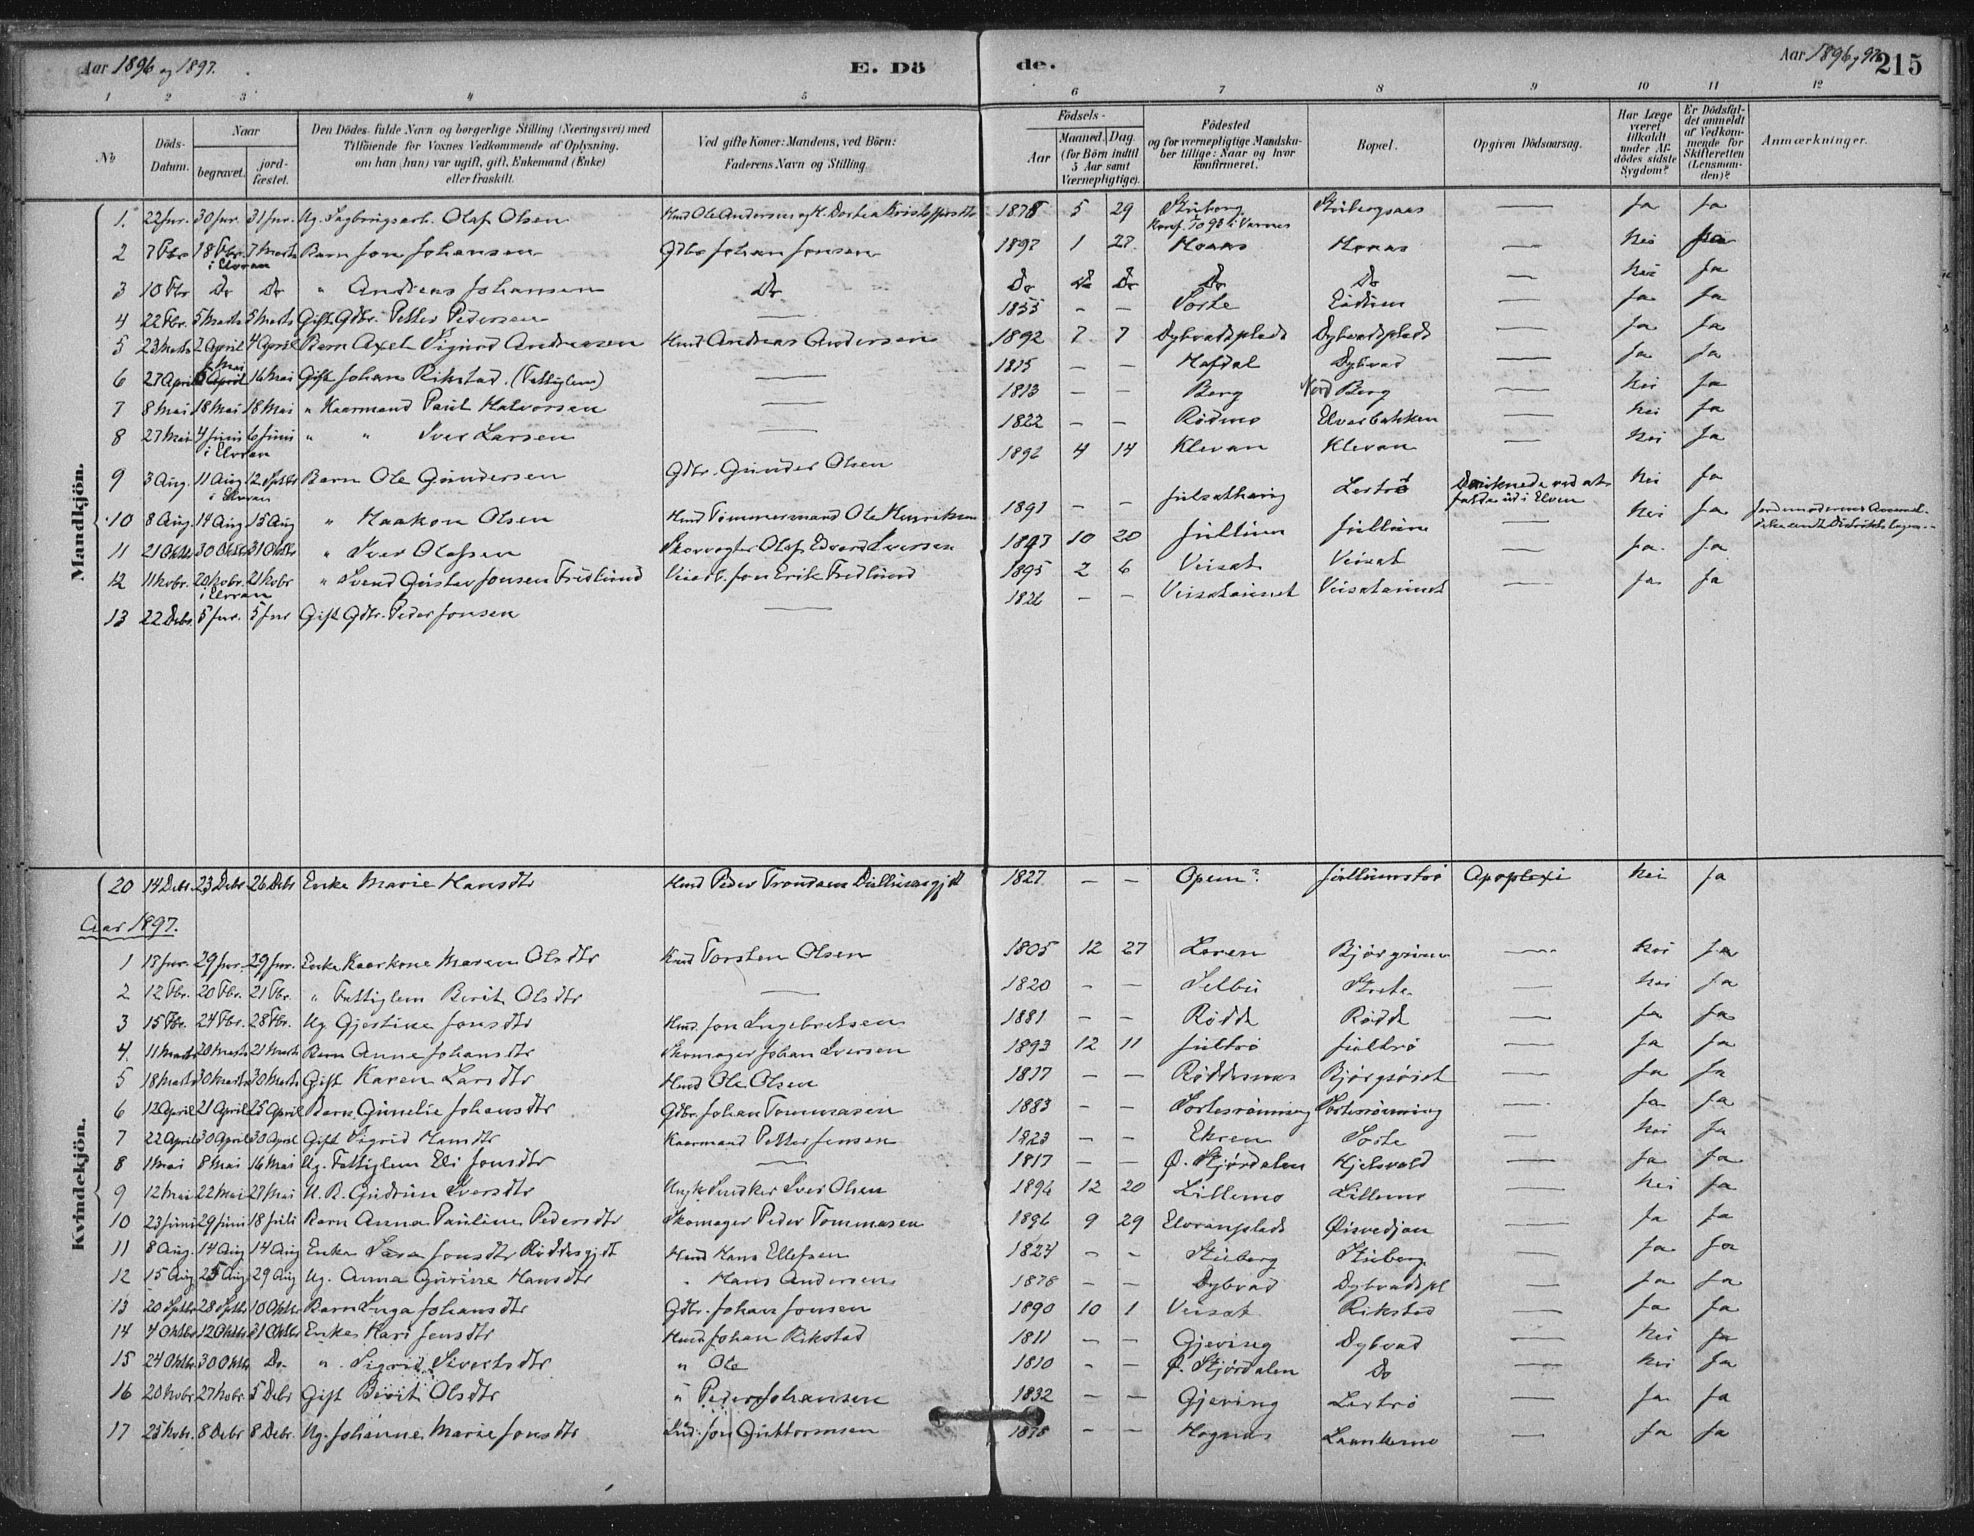 Aar 1896 og 1897.
E. Dö
de.
Aar 1896 og 97
215
1 2 3 4 5 6 7 8 9 10 11 12
No
Döds-Datum.
Naar
begravet.
jord-fæstet.
Den Dödes fulde Navn og borgerlige Stilling (Næringsvei) med
Tilföiende for Voxnes Vedkommende af Oplysning,
om han (hun) var ugift, gift, Enkemand (Enke)
eller fraskilt.
Ved gifte Koner: Mandens, ved Börn:
Faderens Navn og Stilling.
Födsels-
Aar
Maaned. Dag.
(for Börn indtil
5 Aar samt
Værnepligtige).
Födested
og for værnepligtige Mandsku-
ber tillige: Naar og hvor
konfirmeret.
Bopæl.
Opgiven Dödsaarsag.
Har Læge
været
tilkaldt
under Af-
dödes sidste
Sygdom?
Er Dödsfal-
det anmeldt
af Vedkom-
mende for
Skifteretten
(Lensman-
den)?
Anmærkninger.
Mandkjön.
1. 22 Jnr. 30 Jnr. 31 Jnr. Ug. Sagbrugsarb. Olaf Olsen Hmd Ole Andersen og H. Dortea Kristoffersdtr 1878 5 29 Stuberg Stubergsaas — Ja Ja
Konf. 7/10 93 i Værnes
2 7 Fbr. 18 Fbr. 7 Marts Barn Jon Johansen Gdbr Johan Jonsen 1897 1 27. Moaas Moaas — Nei Ja
i Elvran
3 10 Fbr Do Do " Andreas Johansen Do Do Do Do Do Do — Nei Ja
4 22 Fbr. 5 Marts 5 Marts Gift Gdbr. Petter Pedersen — 1855 — — Sorte Eidum — Ja Ja
5 23 Marts 2 April 4 April Barn Axel Sigurd Andreasen Hmd Andreas Andersen 1892 7 7 Dybvadsplads Dybvadsplads — Ja Ja
6 27 April 6 Mai 16 Mai Gift Johan Rikstad. (Fattiglem) — 1815 — — Hofdal Dybvad — Ja Ja
7 8 Mai 18 Mai 18 Mai " Kaarmand Paul Halvorsen — 1813 — — Berg Nord Berg — Nei Ja
8 27 Mai 4 Juni 6 Juni " " Iver Larsen — 1822 — — Rødmo Elverbakken — Nei Ja
i Elvran
9 3 Aug. 11 Aug 12 Sptbr Barn Ole Gundersen Gdbr. Gunder Olsen 1892 4 14 Klevan Klevan — Nei Ja
i Elvran
10 8 Aug. 14 Aug 15 Aug " Haakon Olsen Hmd Tømmermand Ole Henriksen 1891 — — Julsathaug Lertrø Druknede ved at falde ud i Elven Nei Ja
11 21 Oktbr 30 Oktbr 31 Oktbr " Iver Olafsen Skovvogter Olaf Edvard Iversen 1897 10 20 Jullum Jullum — Nei Ja
12 11 Novbr. 20 Novbr. 21 Novbr " Svend Gustav Jonsen Fredlund Veiarb. Jon Erik Fredlund 1895 2 6 Veisat Veisat — Ja. Ja
i Elvran
13 22 Debr. 5 Jnr. 5 Jnr Gift Gdbr. Peder Jonsen — 1826 — — Veisataunet Veisataunet — Ja Ja
Kvindekjön.
20 14 Debr. 23 Debr 26 Debr Enke Marie Hansdtr Hmd Peder Trondsen 1827 — — Opem? Jullumstrø Apoplexi Nei Ja
Aar 1897.
1 18 Jnr. 29 Jnr. 29 Jnr. Enke Kaarkone Maren Olsdtr Hmd Torsten Olsen 1805 12 27 Loren Bjørgmoen — Nei Ja
2 12 Fbr. 20 Fbr. 21 Fbr. " Fattiglem Berit Olsdtr — 1820 — — Selbu Strete — Nei Ja
3 15 Fbr. 24 Fbr. 28 Fbr. Ug. Gjestine Jonsdtr Hmd. Jon Ingebretsen 1881 — — Rødde Rødde — Ja Ja
4. 11 Marts 20 Marts 21 Marts Barn Anne Johansdtr Skomager Johan Iversen 1893 12 11 Jultrø Jultrø — Ja Ja
5 18 Marts 30 Marts 30 Marts Gift Karen Larsdtr Hmd Ole Olsen 1817 — — Røddesmo — Ja Ja
6 12 April 21 April 25 April Barn Gunelie Johansdtr Gdbr. Johan Tommasen 1883 — — Sorterønning Sorterønning — Ja Ja
7 22 April 30 April 30 April Gift Sigrid Hansdtr Kaarmand Petter Jensen 1823 — — Ekren Sorte — Nei Ja
8 1 Mai 8 Mai 16 Mai Ug. Fattiglem Eli Jonsdtr — 1817 — — Ø. Stjørdalen Hjelsvold — Ja Ja
9 12 Mai 22 Mai 27 Mai U. B. Gudrun Iversdtr Ungk Snedker Iver Olsen 1896 12 20 Lillemo Lillemo — Nei Ja
10 23 Juni 29 Juni 18 Juli Barn Anna Pauline Pedersdtr Skomager Peder Tommasen 1896 9 29 Elvranplads Øisvedjan — Ja Ja
11 8 Aug. 14 Aug 14 Aug Enke Sara Jonsdtr Røddesgjdt Hmd Hans Ellefsen 1827 — — Stuberg Stuberg — Ja Ja
12 15 Aug 25 Aug. 29 Aug Ug. Anna Gurine Hansdtr " Hans Andersen 1878 — — Dybvad Dybvadspl — Ja Ja
13 20 Sptbr 28 Sptbr 10 Oktbr Barn Inga Johansdtr Gdbr. Johan Jonsen 1890 10 1 Veisat Rikstad — Ja Ja
14 4 Oktbr 12 Oktbr 31 Oktbr Enke Kari Jensdtr Hmd Johan Rikstad 1811 — — Gjeving Dybvad — Nei Ja
15 24 Oktbr 30 Oktbr Do " Sigrid Sivertsdtr " Ole 1810 — — Ø. Stjørdalen Do — Nei Ja
16 20 Novbr 27 Novbr 5 Debr Gift Berit Olsdtr " Peder Johansen 1832 — — Gjeving Lertrø — Ja Ja
17 25 Novbr. 8 Debr 8 Debr. Ug. Johanne Marie Jonsdtr Jon Guttormsen 1878 — — Hognes Laankemo — Ja Ja